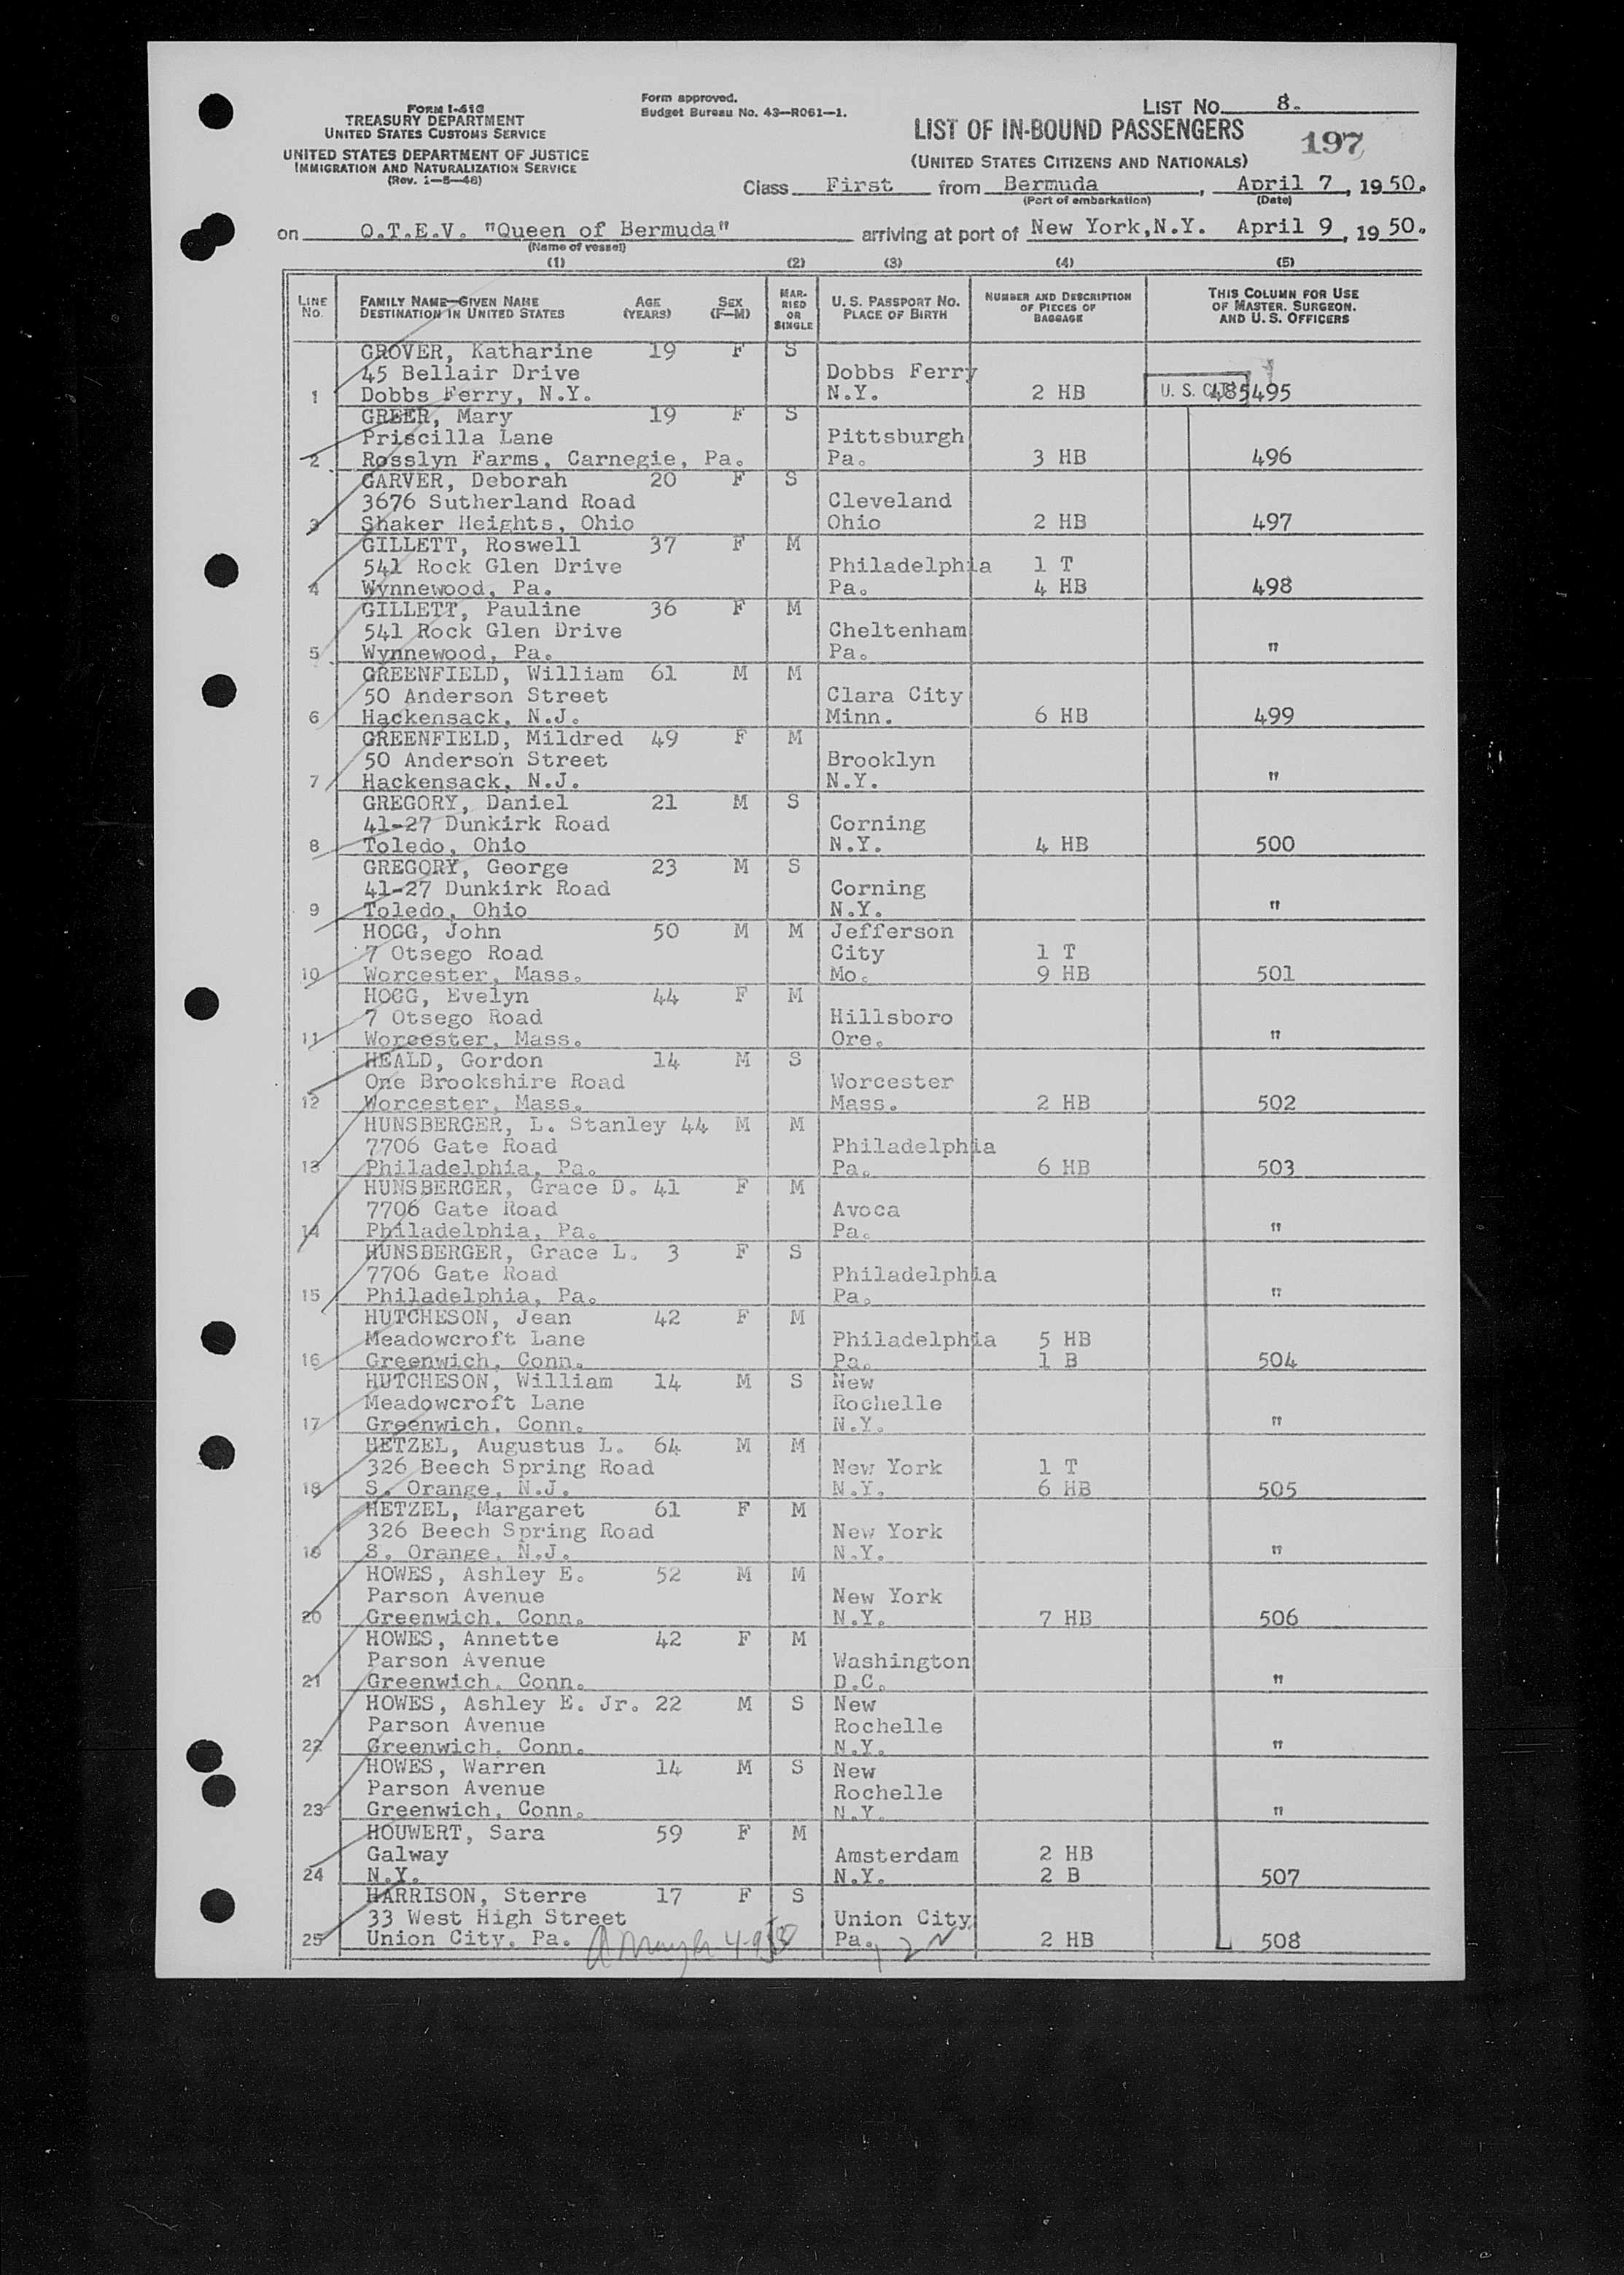 FORM I-418
TREASURY DEPARTMENT
UNITED STATES CUSTOMS SERVICE
UNITED STATES DEPARTMENT OF JUSTICE
IMMIGRATION AND NATURALIZATION SERVICE
(Rev. 1—5—48)
Form approved.
Budget Bureau No. 43—R061—1.
LIST NO. 8.
LIST OF IN-BOUND PASSENGERS
197
(UNITED STATES CITIZENS AND NATIONALS)
Class First from Bermuda, April 7, 1950.
(Port of embarkation) (Date)
on Q.T.E.V. "Queen of Bermuda" arriving at port of New York, N.Y. April 9, 1950.
(Name of vessel)
(1) (2) (3) (4) (5)
LINE NO. FAMILY NAME—GIVEN NAME DESTINATION IN UNITED STATES AGE (YEARS) SEX (F—M) MARRIED OR SINGLE U. S. PASSPORT NO. PLACE OF BIRTH NUMBER AND DESCRIPTION OF PIECES OF BAGGAGE THIS COLUMN FOR USE OF MASTER, SURGEON, AND U. S. OFFICERS
GROVER, Katharine 19 F S
45 Bellair Drive Dobbs Ferry
1 Dobbs Ferry, N.Y. N.Y. 2 HB U. S. CIT. 485495
GREER, Mary 19 F S
Priscilla Lane Pittsburgh
2 Rosslyn Farms, Carnegie, Pa. Pa. 3 HB 496
GARVER, Deborah 20 F S
3676 Sutherland Road Cleveland
3 Shaker Heights, Ohio Ohio 2 HB 497
GILLETT, Roswell 37 F M
541 Rock Glen Drive Philadelphia 1 T
4 Wynnewood, Pa. Pa. 4 HB 498
GILLETT, Pauline 36 F M
541 Rock Glen Drive Cheltenham
5 Wynnewood, Pa. Pa. "
GREENFIELD, William 61 M M
50 Anderson Street Clara City
6 Hackensack, N.J. Minn. 6 HB 499
GREENFIELD, Mildred 49 F M
50 Anderson Street Brooklyn
7 Hackensack, N.J. N.Y. "
GREGORY, Daniel 21 M S
41-27 Dunkirk Road Corning
8 Toledo, Ohio N.Y. 4 HB 500
GREGORY, George 23 M S
41-27 Dunkirk Road Corning
9 Toledo, Ohio N.Y. "
HOGG, John 50 M M Jefferson
7 Otsego Road City 1 T
10 Worcester, Mass. Mo. 9 HB 501
HOGG, Evelyn 44 F M
7 Otsego Road Hillsboro
11 Worcester, Mass. Ore. "
HEALD, Gordon 14 M S
One Brookshire Road Worcester
12 Worcester, Mass. Mass. 2 HB 502
HUNSBERGER, L. Stanley 44 M M
7706 Gate Road Philadelphia
13 Philadelphia, Pa. Pa. 6 HB 503
HUNSBERGER, Grace D. 41 F M
7706 Gate Road Avoca
14 Philadelphia, Pa. Pa. "
HUNSBERGER, Grace L. 3 F S
7706 Gate Road Philadelphia
15 Philadelphia, Pa. Pa. "
HUTCHESON, Jean 42 F M
Meadowcroft Lane Philadelphia 5 HB
16 Greenwich, Conn. Pa. 1 B 504
HUTCHESON, William 14 M S New
Meadowcroft Lane Rochelle
17 Greenwich, Conn. N.Y. "
HETZEL, Augustus L. 64 M M
326 Beech Spring Road New York 1 T
18 S. Orange, N.J. N.Y. 6 HB 505
HETZEL, Margaret 61 F M
326 Beech Spring Road New York
19 S. Orange, N.J. N.Y. "
HOWES, Ashley E. 52 M M
Parson Avenue New York
20 Greenwich, Conn. N.Y. 7 HB 506
HOWES, Annette 42 F M
Parson Avenue Washington
21 Greenwich, Conn. D.C. "
HOWES, Ashley E. Jr. 22 M S New
Parson Avenue Rochelle
22 Greenwich, Conn. N.Y. "
HOWES, Warren 14 M S New
Parson Avenue Rochelle
23 Greenwich, Conn. N.Y. "
HOUWERT, Sara 59 F M
Galway Amsterdam 2 HB
24 N.Y. N.Y. 2 B 507
HARRISON, Sterre 17 F S
33 West High Street Union City
25 Union City, Pa. Pa. 2 HB 508